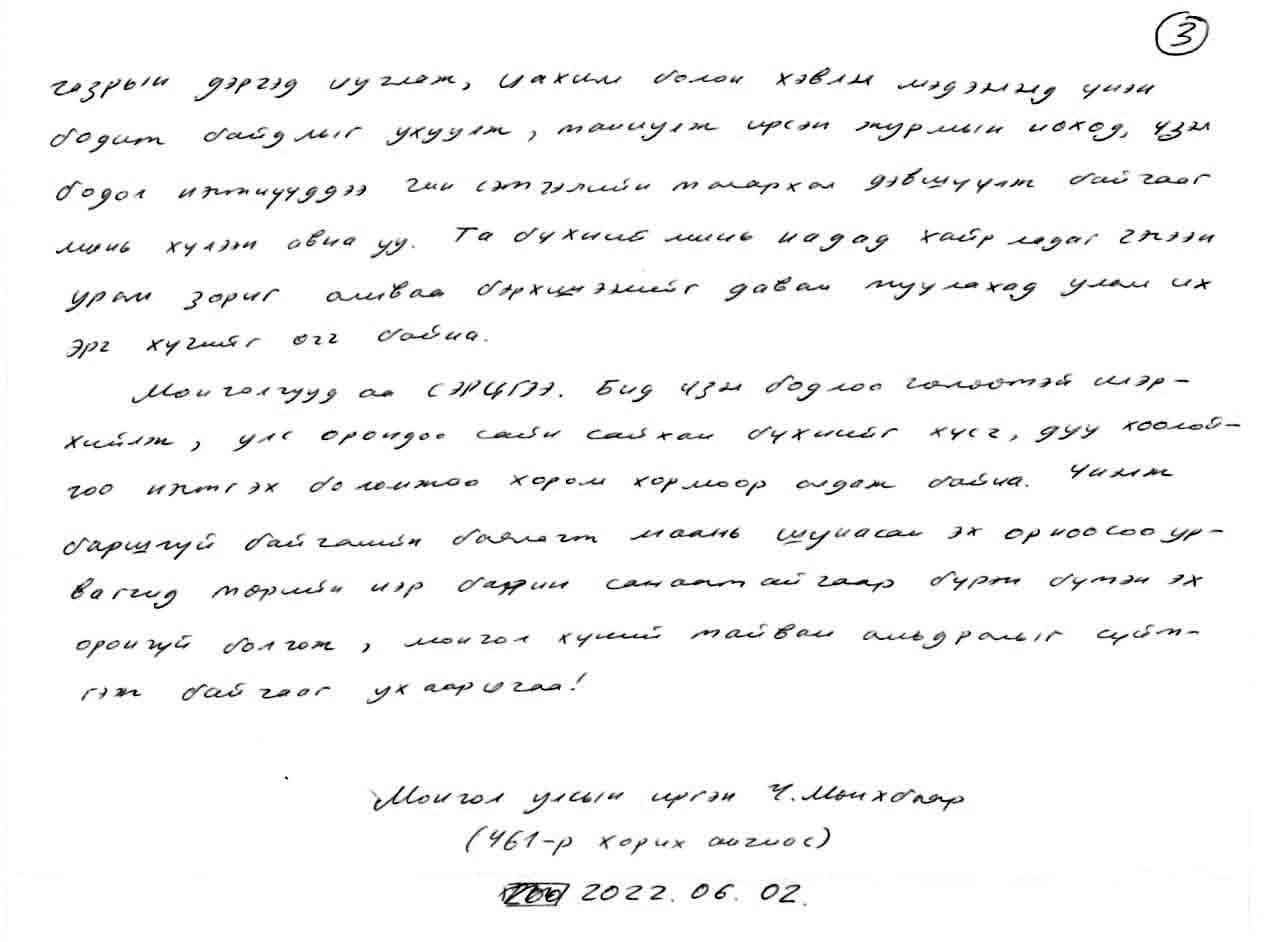 3
газрын дэргэд цуглаж, цахим болон хэвлэл мэдээлэлд үнэн
бодит байдлыг ухуулж, таниулж ирсэн журмын нөхөд, үзэл
бодол нэгтнүүддээ чин сэтгэлийн талархал дэвшүүлж байгааг
минь хүлээн авна уу. Та бүхний минь надад хайрладаг гэгээн
урам зориг аливаа бэрхшээлийг даван туулахад улам их
эрч хүчийг өгч байна.
Монголчууд аа СЭРЦГЭЭ. Бид үзэл бодлоо голоотэй илэр-
хийлж, улс орондоо сайн сайхан бүхнийг хүсч, дуу хоолой-
гоо нэгтгэх боломжоо хором хормоор алдаж байна. Чимж
баршгүй байгалийн баялагт маань шунасан эх орноосоо ур-
вагчид төрийн нэр барин санаатайгаар бүрэн бүтэн эх
оронгүй болгож, монгол хүний тайван амьдралыг сүйт-
гэж байгааг ухаарцгаа!
Монгол улсын иргэн Ч.Мөнхбаяр
(461-р хорих ангиас)
2022. 06. 02.